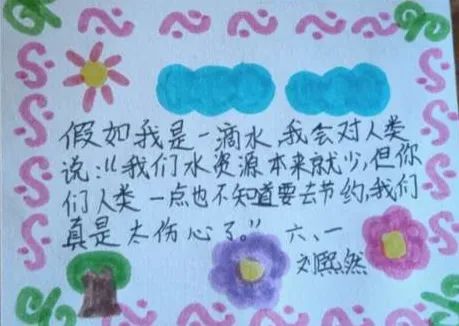 假如我是一滴水,我会对人类
说:“我们水资源本来就少,但你
们人类一点也不知道要去节约,我们
真是太伤心了。” 六、一
刘熙然